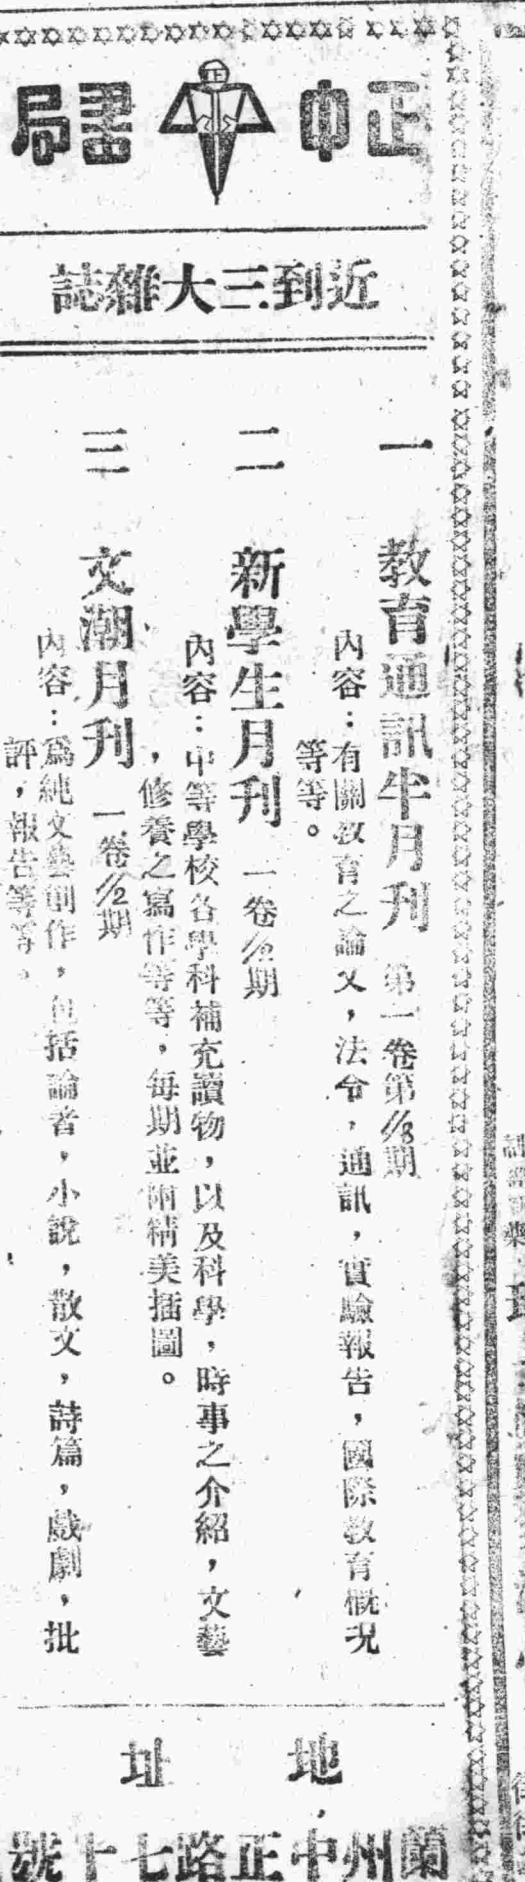 正中書局
近到三大雜誌
一 教育通訊半月刊 第一卷第1/8期
內容：有關教育之論文，法令，通訊，實驗報告，國際教育概況
等等。
二 新學生月刊 一卷期
內容：中等學校各學科補充讀物，以及科學，時事之介紹，文藝
，修養之寫作等等，每期並附精美插圖。
三 文潮月刊 一卷1/2期
內容：為純文藝創作，包括論者，小說，散文，詩篇，戲劇，批
評，報告等等。
地址
蘭州中正路七十號